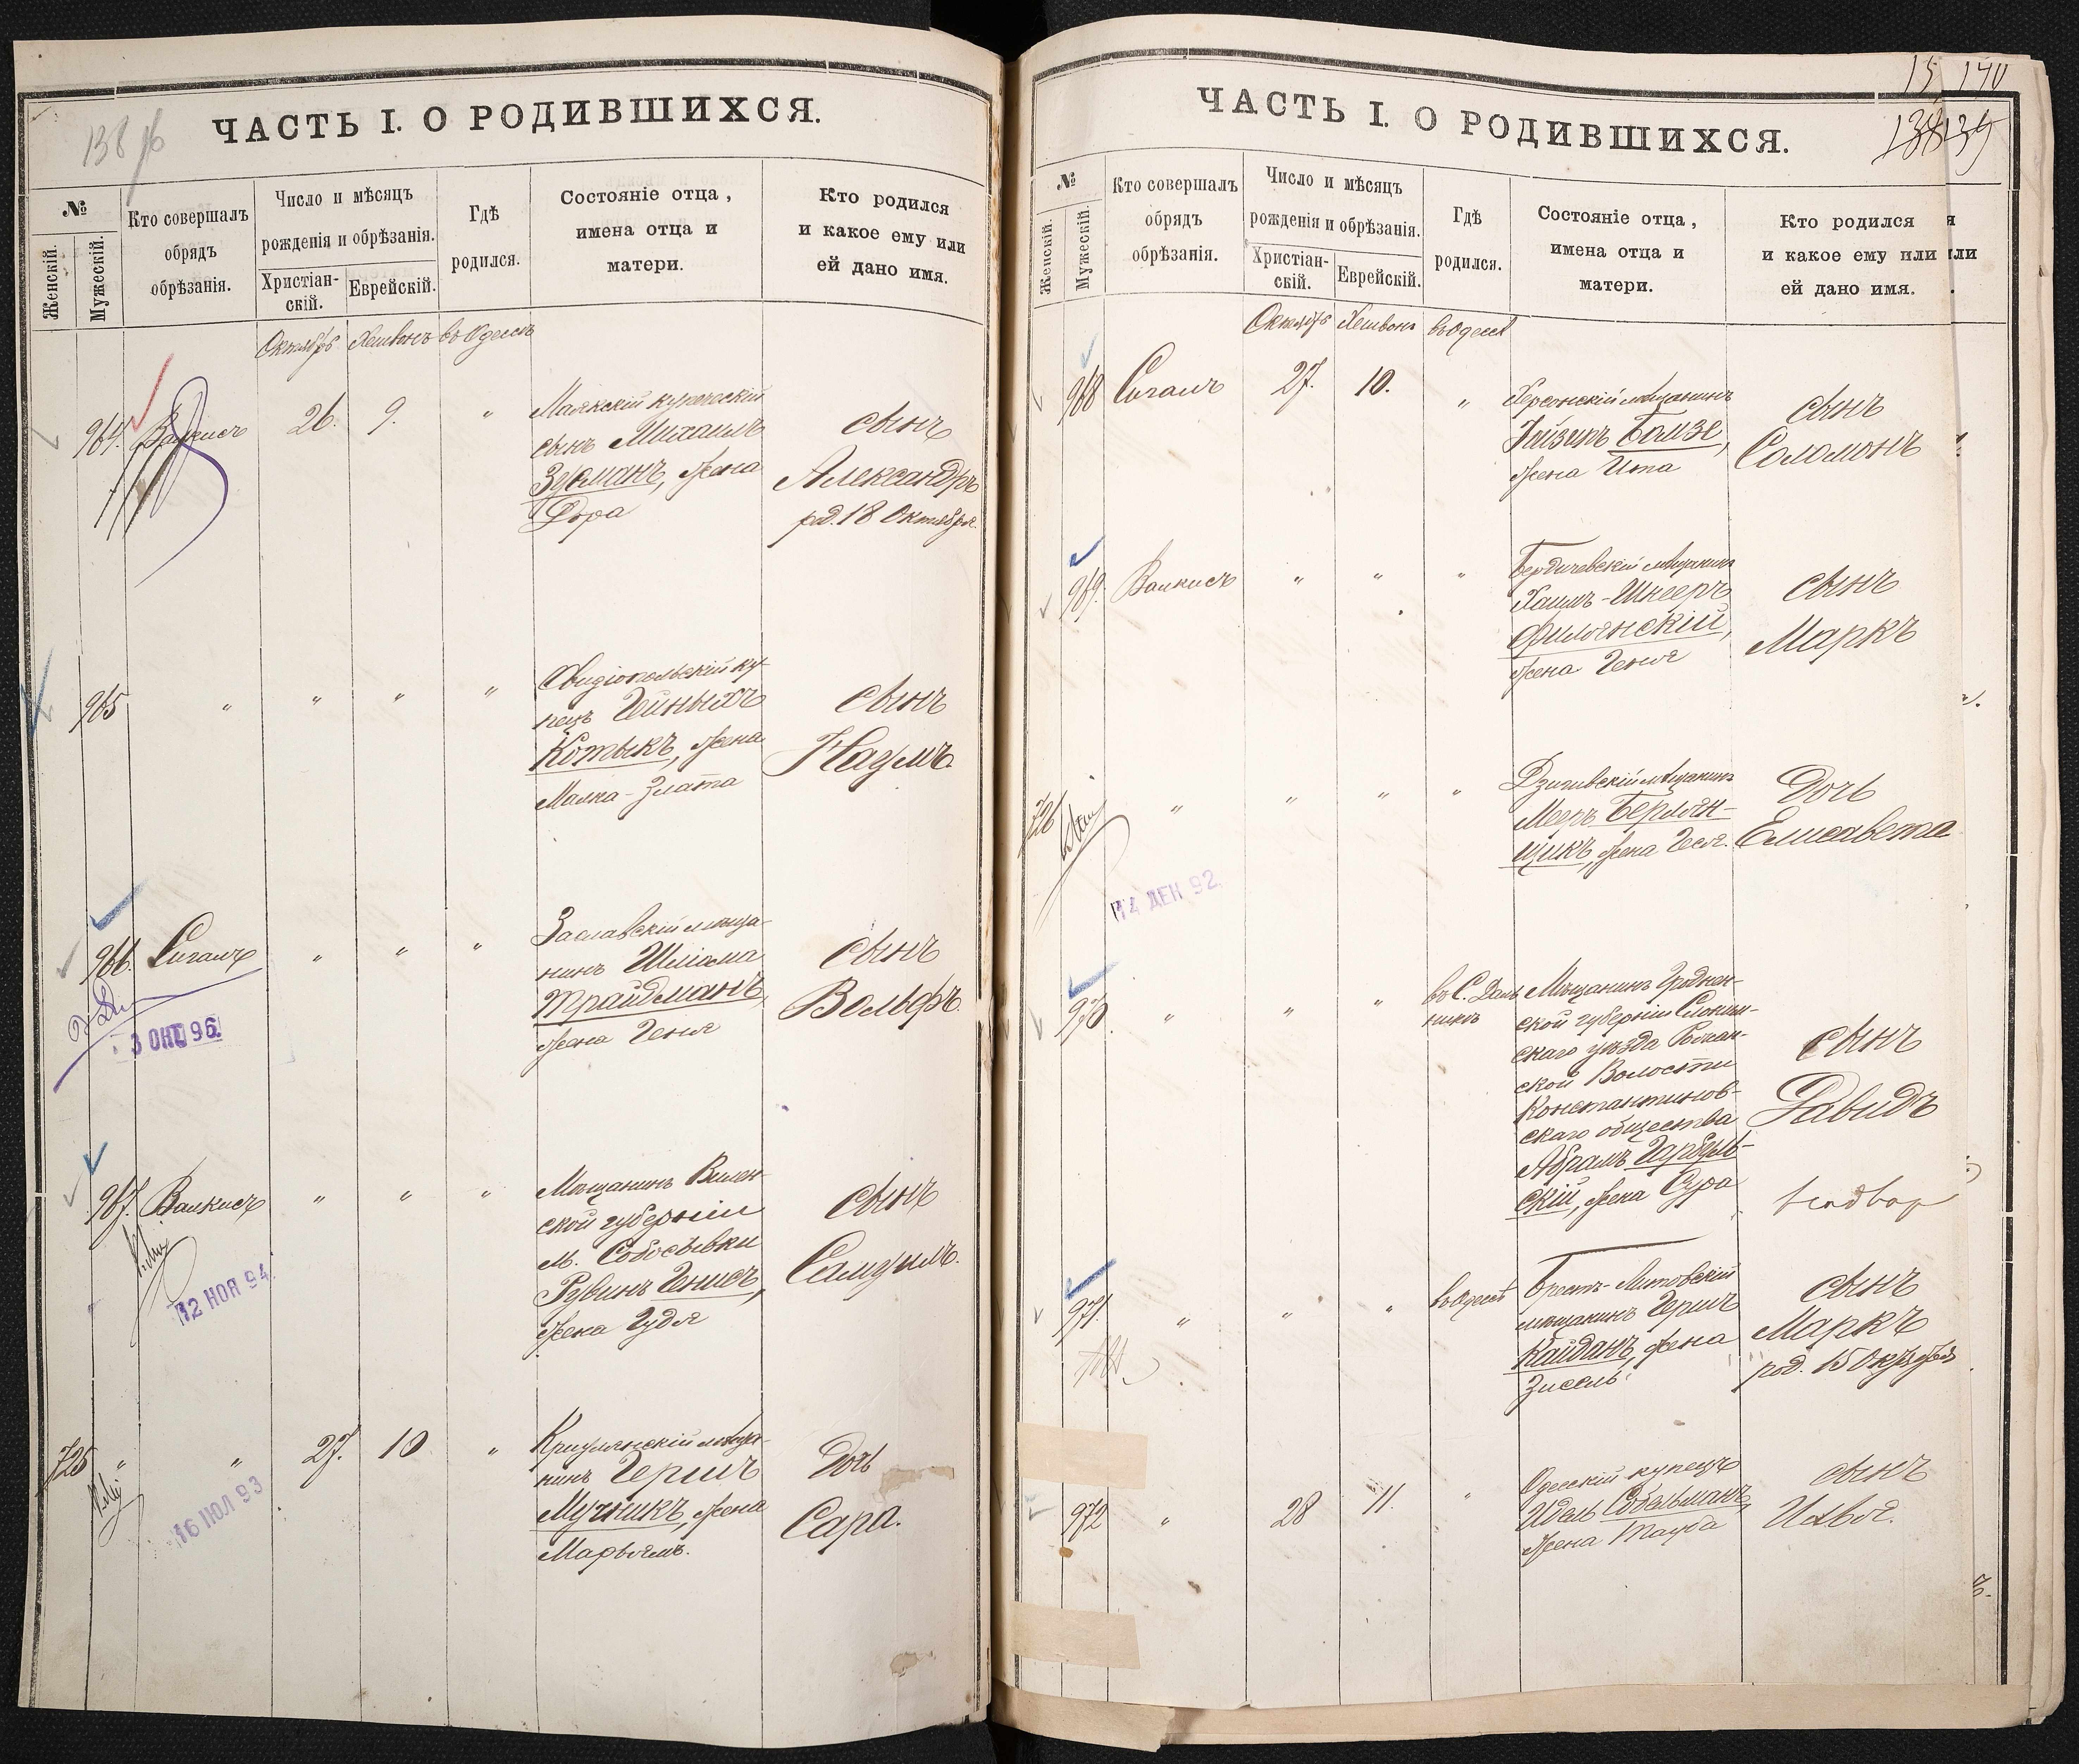 138 об
ЧАСТЬ I. О РОДИВШИХСЯ.
№
Женскій.
Мужескій.
Кто совершалъ
обрядъ
обрѣзанія.
Число и мѣсяцъ
рожденія и обрѣзанія.
Христіан-
скій.
Еврейскій.
Гдѣ
родился.
Состояніе отца,
имена отца и
матери.
Кто родился
и какое ему или
ей дано имя.
Октябрь Хешвонъ въ Одессѣ
964. 26. 9. „
Маякскій купеческій
сынъ Михаилъ
Зусманъ, жена
Дора
сынъ
Александръ
род. 18 Октября.
965 „ „ „ „
Овидіопольскій ку-
пецъ Гейныхъ
Котыкъ, жена
Малка-Злата
сынъ
Наумъ.
966. Сигалъ „ „ „
Заславскій мѣща-
нинъ Шліома
Трайдманъ,
жена Геня
сынъ
Вольфъ.
3 ОКТ 96
967. Валкисъ „ „ „
Мѣщанинъ Вилен-
ской губерніи
м.
Рувинъ Генисъ,
жена Гудя
сынъ
Самуилъ.
12 НОЯ 94
725 „ „ 27. 10 „
Криулянскій мѣща-
нинъ Гершъ
Мучникъ, жена
Марьямъ.
дочь
Сара.
16 ІЮЛ 93
15 140
138 139
ЧАСТЬ I. О РОДИВШИХСЯ.
№
Женскій.
Мужескій.
Кто совершалъ
обрядъ
обрѣзанія.
Число и мѣсяцъ
рожденія и обрѣзанія.
Христіан-
скій.
Еврейскій.
Гдѣ
родился.
Состояніе отца,
имена отца и
матери.
Кто родился
и какое ему или
ей дано имя.
Октябрь Хешвонъ въ Одессѣ
968 Сигалъ 27. 10. „
Херсонскій мѣщанинъ
Айзикъ Бамзе,
жена Ита
сынъ
Соломонъ
969. Валкисъ „ „ „
Бердичевскій мѣщанинъ
Хаимъ-Шнееръ
Филянскій,
жена Геня
сынъ
Маркъ
726 „ „ „ „
Дзигивскій мѣщанинъ
Мееръ Берлян-
щикъ, жена Геся.
дочь
Елисавета
14 ДЕК 92
970 „ „ „
въ С. Даль-
никѣ
Мѣщанинъ Гроднен-
ской губерніи Слоним-
скаго уѣзда
ской Волости
Константинов-
скаго общества
Абрамъ Гарбуль-
скій, жена Сура
сынъ
Давидъ
971. „ „ „ въ Одессѣ
Брестъ-Литовскій
мѣщанинъ Гершъ
Кайданъ, жена
Зисель.
сынъ
Маркъ
род. 15 Октября
972 „ 28 11. „
Одесскій купецъ
Идель Собельманъ,
жена Тауба
сынъ